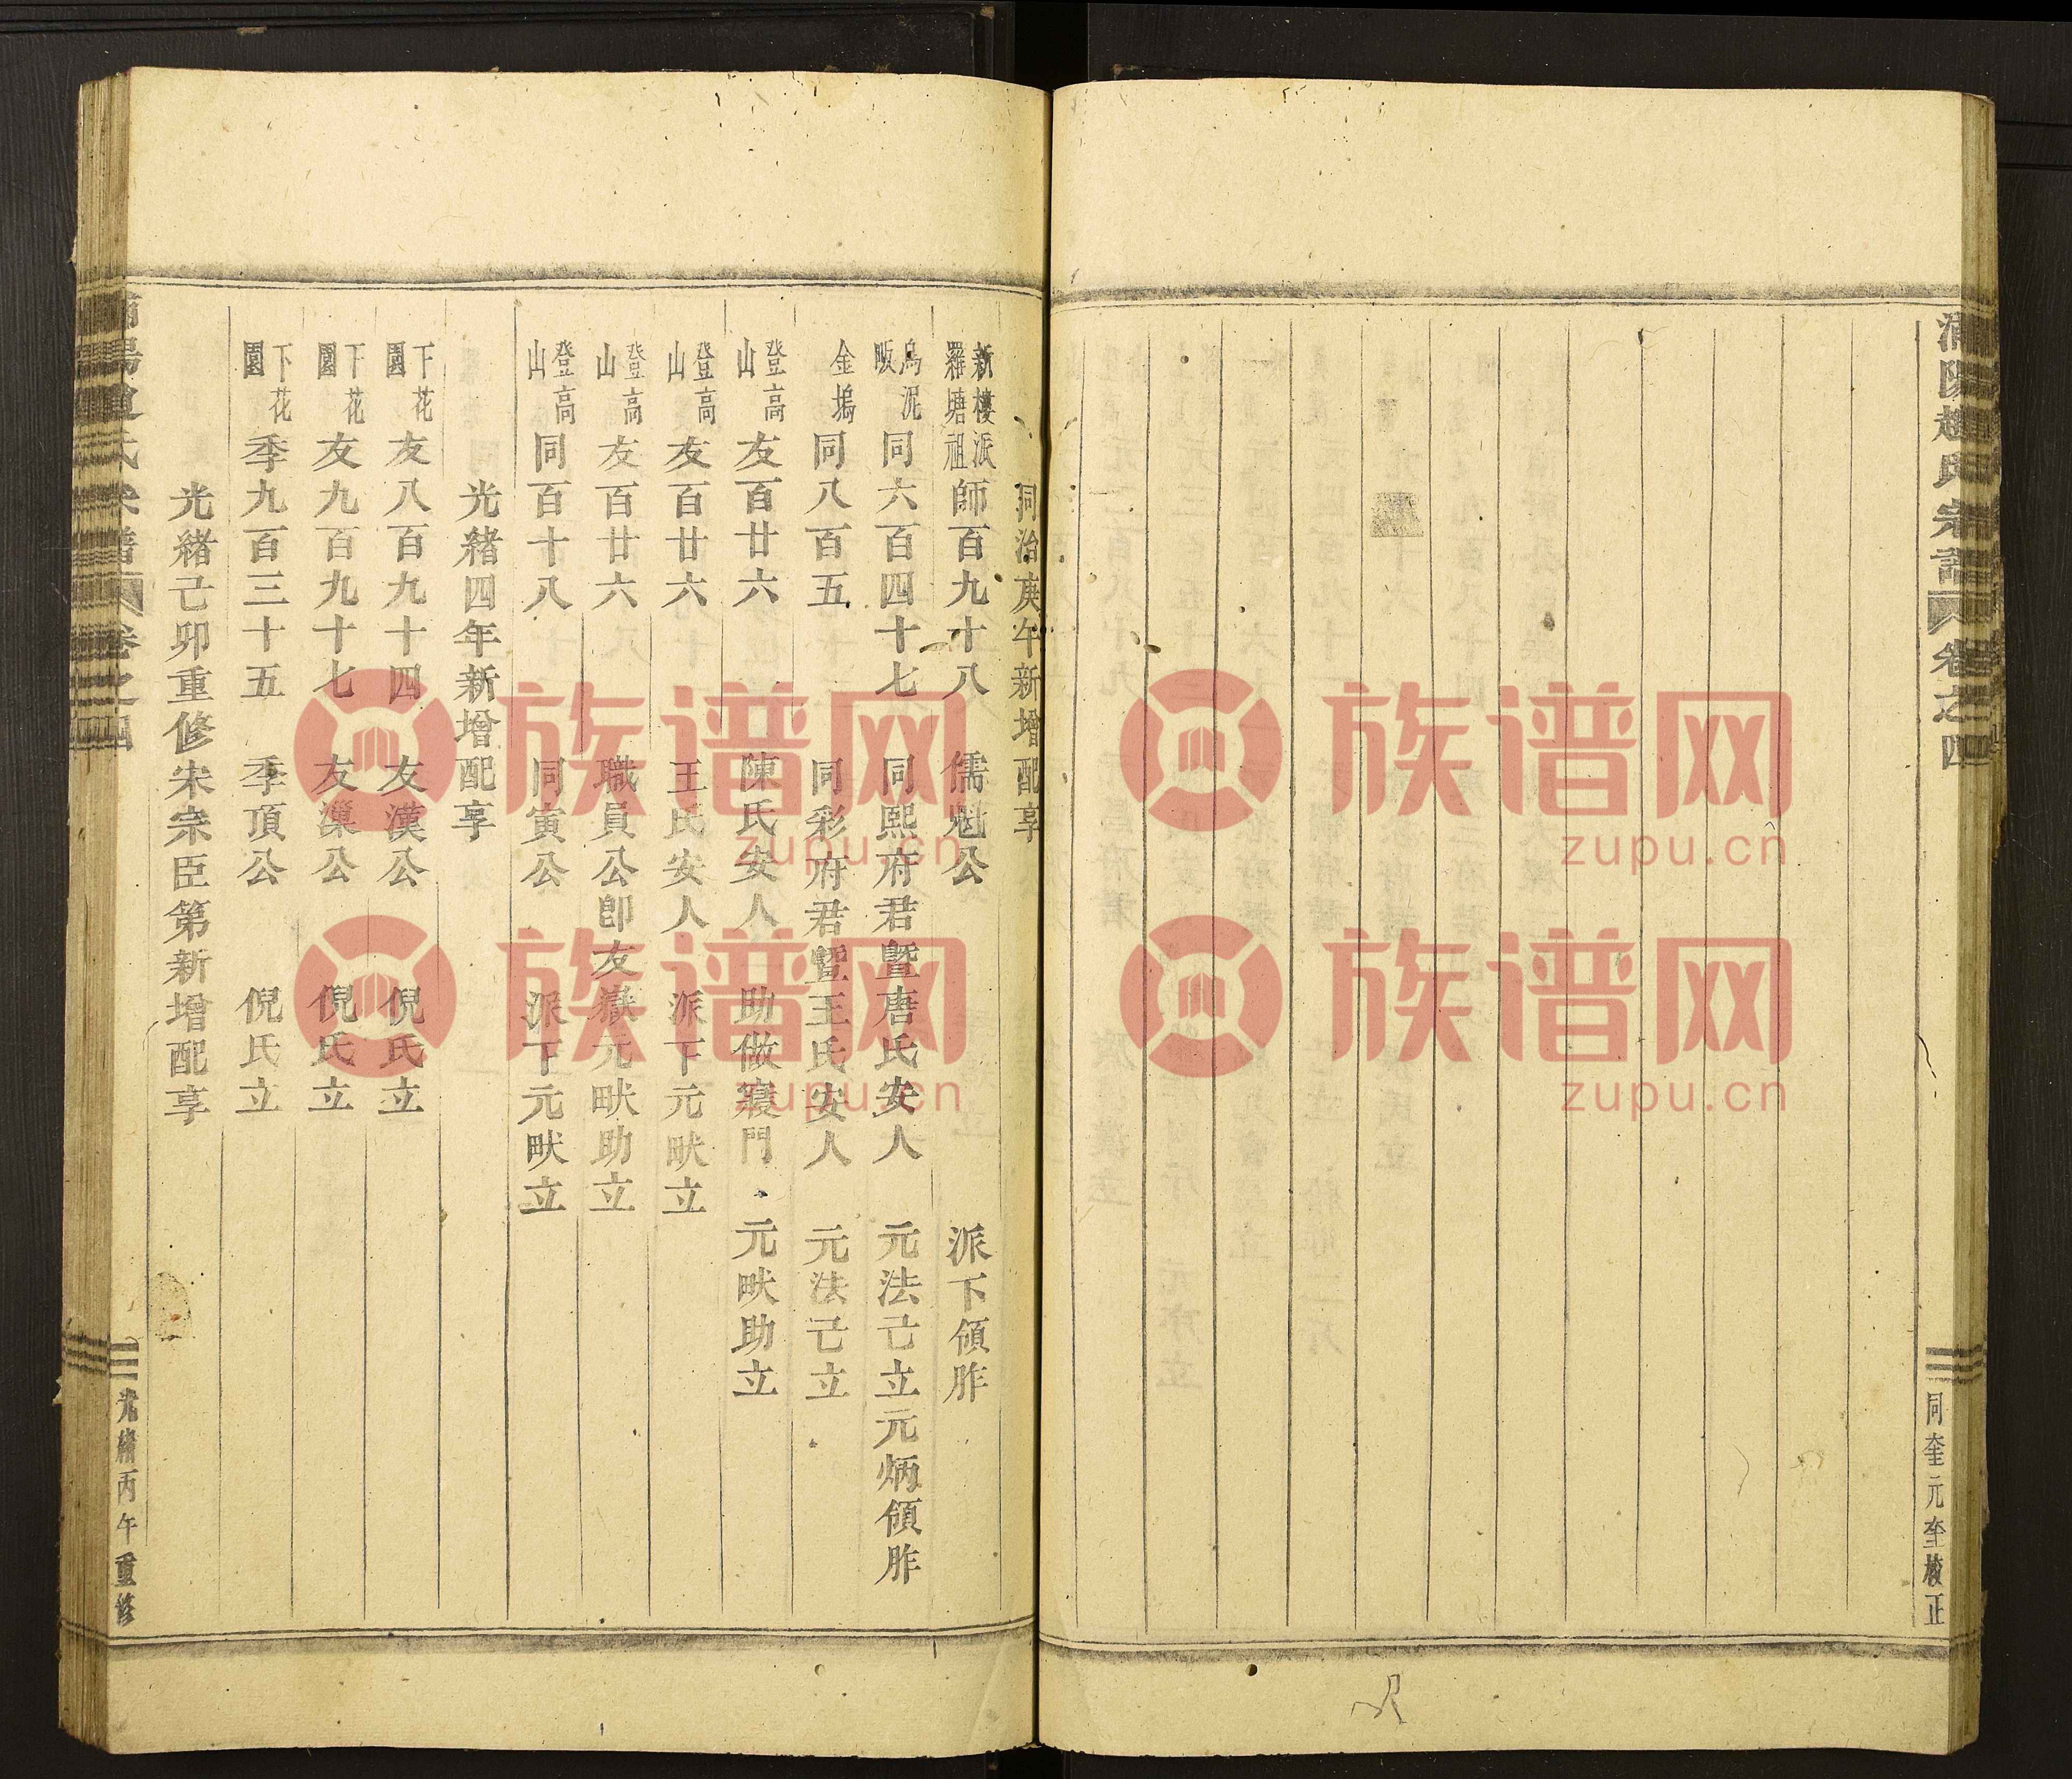 浦陽趙氏宗譜 卷之四
同奎元奎校正
同治庚午新增配享
新樓派羅塘祖 師百九十八 儒魁公 派下領胙
烏泥畈 同六百四十七 同熙府君暨唐氏安人 元法己立元炳領胙
金塢 同八百五 同彩府君暨王氏安人 元法己立
登高山 友百廿六 陳氏安人 助做寢門 元畎助立
登高山 友百廿六 王氏安人 派下元畎立
登高山 友百廿六 職員公卽友嶽元畎助立
登高山 同百十八 同寅公 派下元畎立
光緒四年新增配享
下花園 友八百九十四 友漢公 倪氏立
下花園 友九百九十七 友灜公 倪氏立
下花園 季九百三十五 季頂公 倪氏立
光緒己卯重修宋宗臣第新增配享
浦陽趙氏宗譜 卷之四
光緒丙午重修
族谱网
zupu.cn
族谱网
zupu.cn
族谱网
zupu.cn
族谱网
zupu.cn